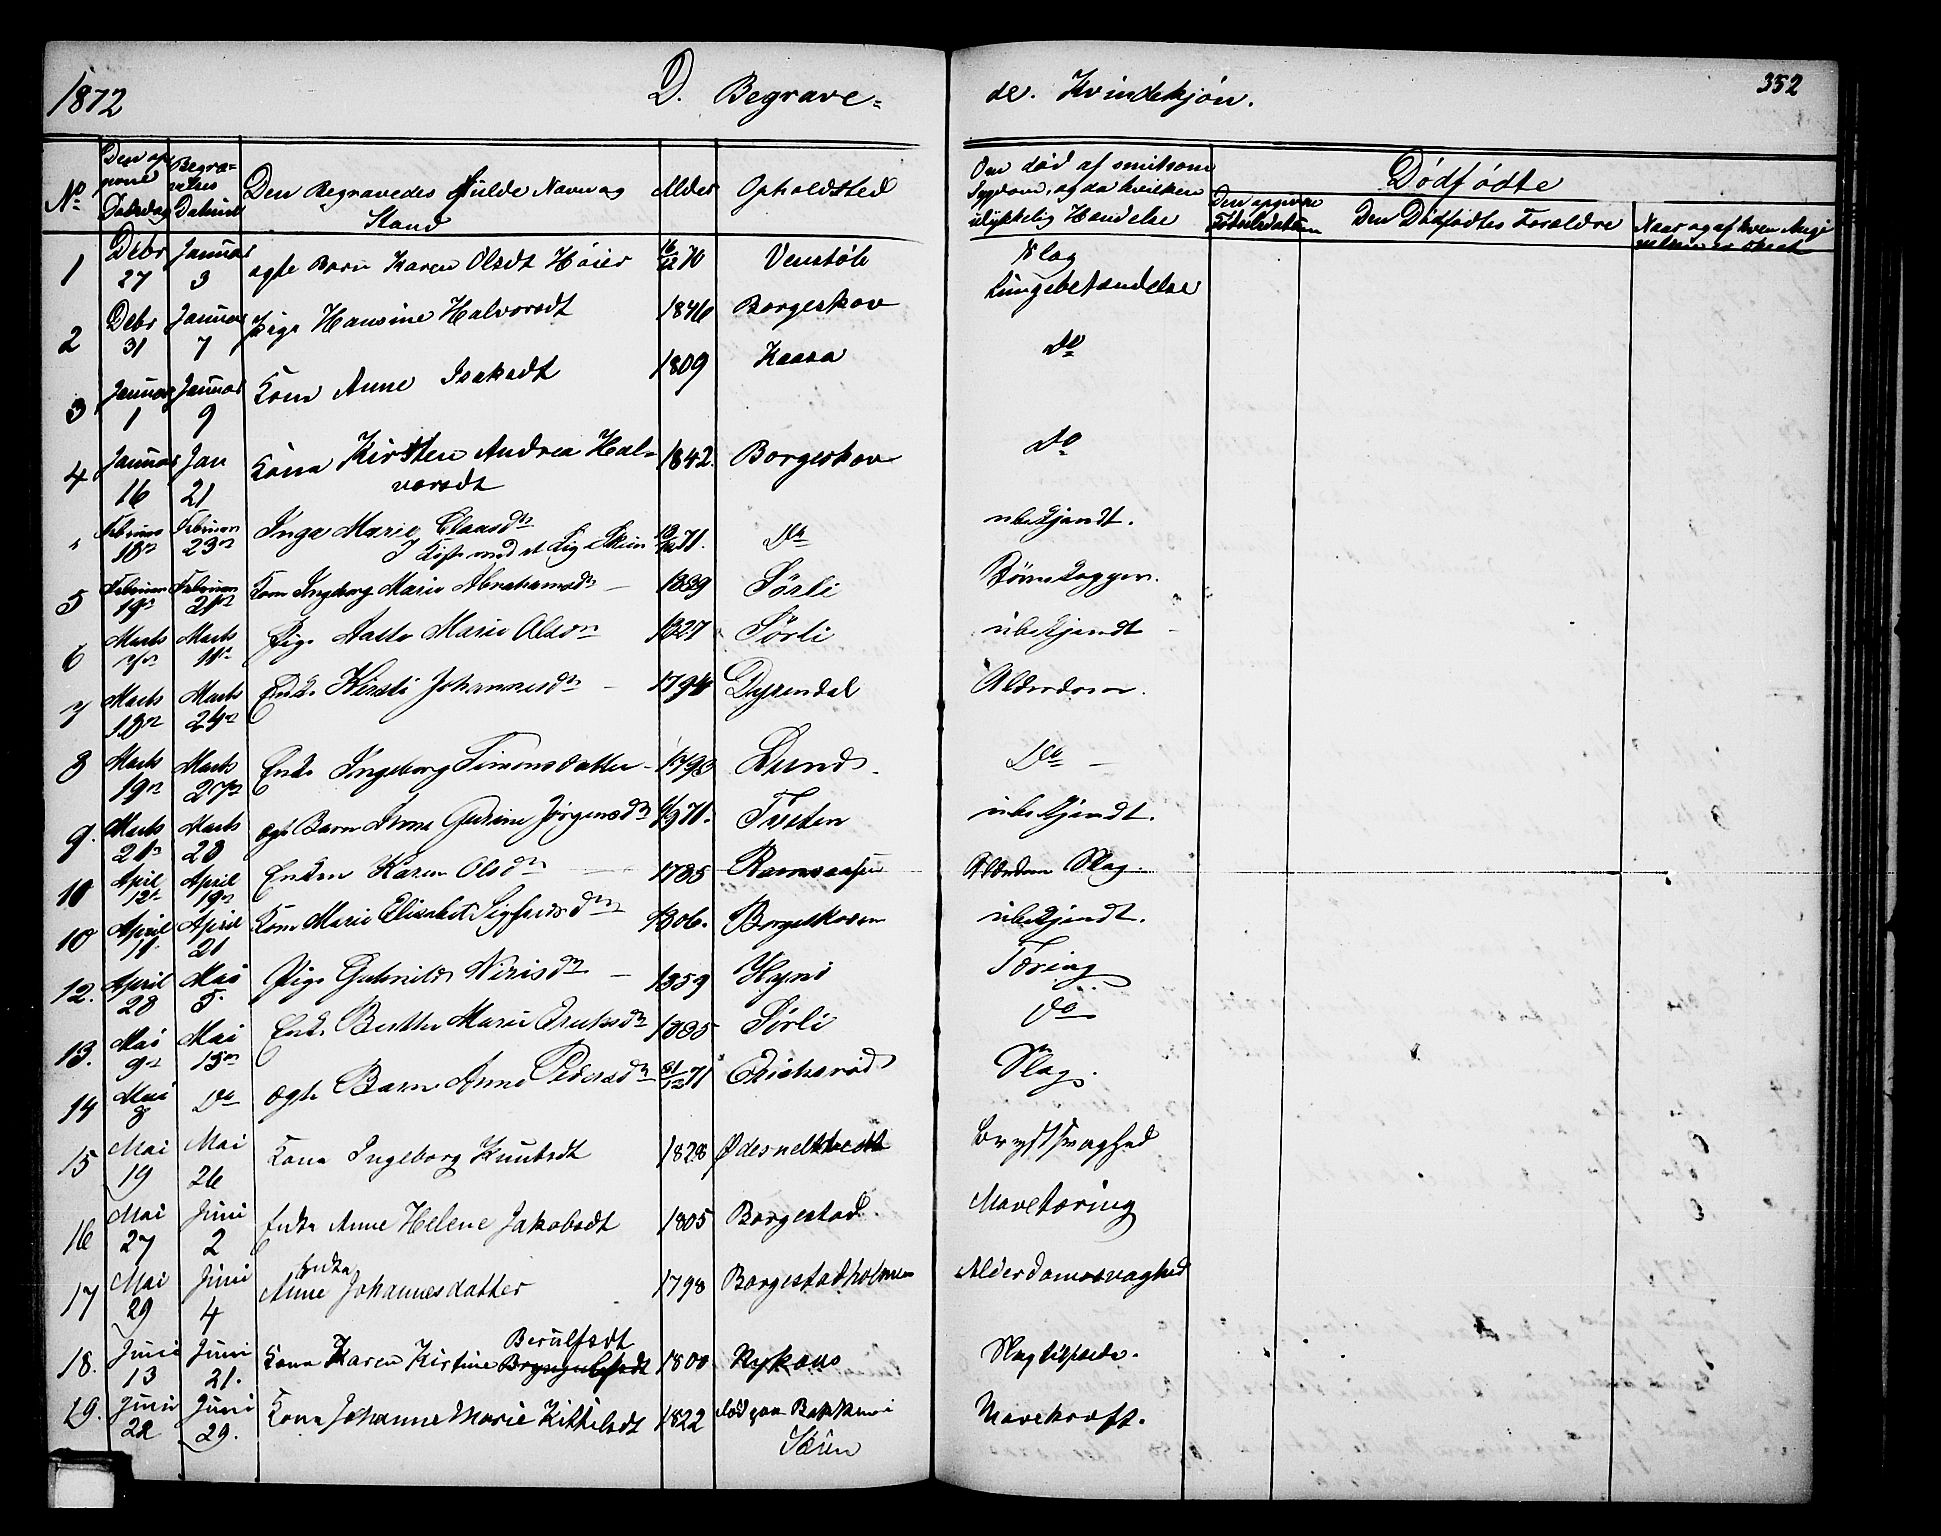 1872 D. Begrave= de. Kvindekjön. 352
No Den opgivne Dødsdag Begravelses Datum Den Begravedes fulde Navn og Stand Alder Opholdsted Om død af smitsom Sygdom, og da hvilken ulykkelig Hændelse Dödfödte
Den opgivne Födselsdatum Den Dödfödtes Forældre Naar og af hvem
1 Debr 27 Januar 3 ægte Barn Karen Olsdt Höier 16/12 70 Venstöb Slag
2 Debr 31 Januar 7 Pige Hansine Halvorsdt 1846 Borgeskov Lungebetændelse
3 Januar 1 Januar 9 Kone Anne Isaksdt 1809 Kaasa Do
4 Januar 16 Jan 21 Kona Kirsten Andrea Hal-
vorsdt 1842. Borgeskov Do
Februar 18de Februar 23de Inga Marie Claasdtr 71. Do ubekjendt.
I Kiste med et Lig i Skien
5 Februar 19de Februar Kone Ingeborg Marie Abrahamsdtr 1839 Sörli
6 Marts 7de Marts 11te Pige Aaste Marie Olsdtr 1827 Sörli ubekjendt
7 Marts 18de Marts 24de Enke Kirsti Johannesdtr 1794 Dyrendal Alderdom.
8 Marts 19de Marts 27de Enke Ingeborg Simonsdatter 1793 Lunde Do
9. Marts 21de Marts 28 ægte Barn Anne Gurine Jörgensdtr 71. Tuften ubekjendt.
10 April 12te April 19de Enken Karen Olsdtr 1785 Ramsaasen Alderdom Slag.
10 April 11 April 21 Kone Marie Elisabet Sigfredsdtr 1806. Borgeskoven ubekjendt.
12. April 28 Mai 5. Pige Gunhild Nirisdtr 1859 Hyni Tæring
13. Mai 9de Mai 15de Enke Berthe Marie 1835 Sörli Do
14 Mai 8 Do ægte Barn Anne Pedersdtr 31/12 71 Eriksröd Slag.
15 Mai 19 Mai 26 Kona Ingeborg Knutsdt 1828 Brystsvaghed
16 Mai 27 Juni 2 Enka Anne Helene Jakobsdt 1805 Borgestad. Mavetæring
Enka
17 Mai 29 Juni 4 Anne Johannesdatter 1798 Borgestadholmen Alderdomssvaghed
Berulfsdt
18. Juni 13 Juni 21. Kona Karen Kirtine Bryngulfsdt 1800 Nykaas Slagtilfælde.
19. Juni 22 Juni 29. Kona Johanne Marie Kittilsdt 1822 död paa Bakken i Mavekræft.
Skien